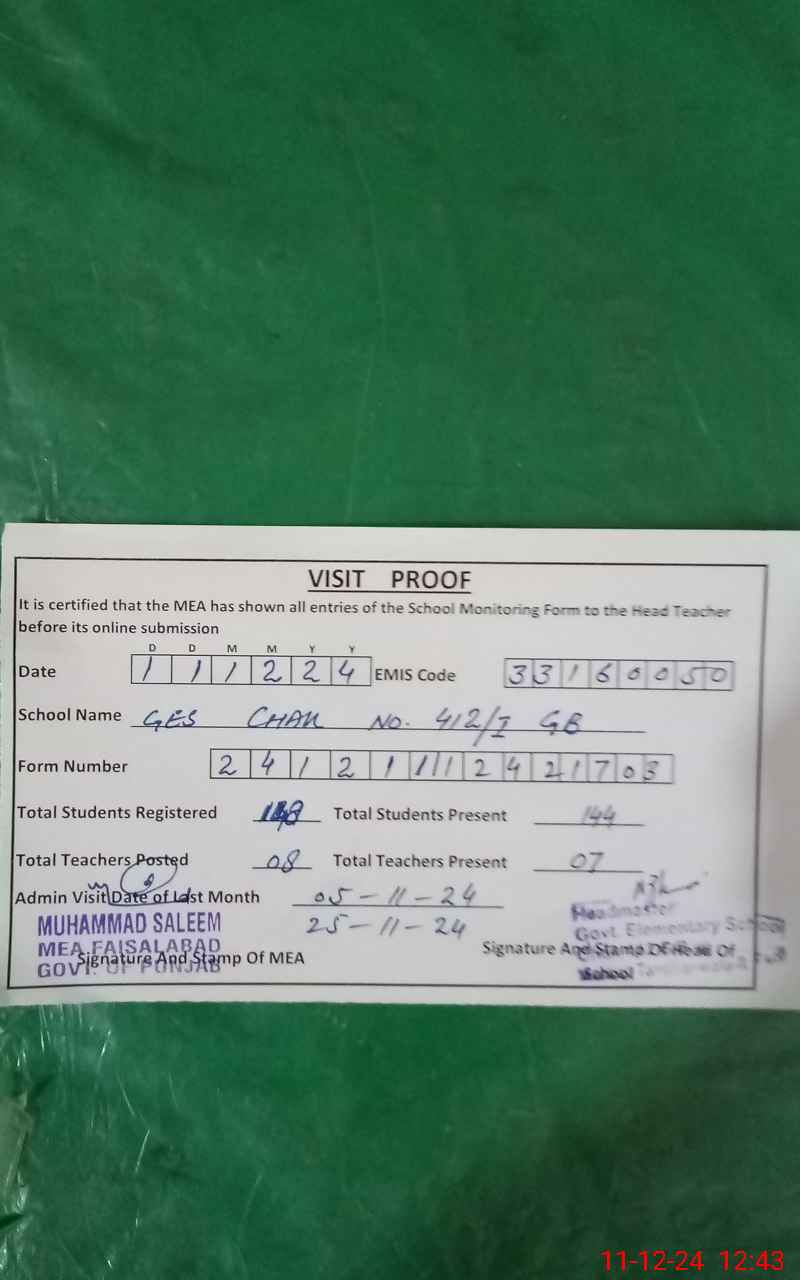 VISIT PROOF
It is certified that the MEA has shown all entries of the School Monitoring Form to the Head Teacher
before its online submission
D D M M Y Y
Date 1 1 1 2 2 4 EMIS Code 3 3 1 6 0 0 5 0
School Name GES CHAK NO. 412/I GB
Form Number 2 4 1 2 1 1 1 1 2 4 2 1 7 0 3
Total Students Registered Total Students Present 144
Total Teachers Posted 08 Total Teachers Present 07
Admin Visit Date of Last Month 05-11-24
25-11-24
MUHAMMAD SALEEM
MEA FAISALABAD
GOVT. OF PUNJAB
Signature And Stamp Of MEA
Headmaster
Govt. Elementary School
Signature And Stamp Of Head Of
School
11-12-24 12:43